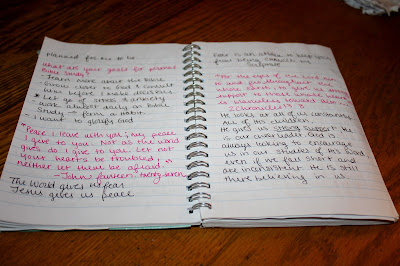 planned for me to be.
What are your goals for personal
Bible Study?
- Learn more about the Bible
- Grow closer to God & consult
him before I make decisions
* Let go of stress & anxiety
- work almost daily on Bible
Study → form a habit.
- I want to glorify God
"Peace I leave with you; my peace
I give to you. Not as the world
gives do I give to you. Let not
your hearts be troubled,
neither let them be afraid."
- John fourteen: twenty seven
The World gives us fear
Jesus gives us peace
Fear is an attack to keep you
from being
purpose
"For the eyes of the Lord run
to and fro throughout the
whole earth, to give strong
support to those whose heart
is blameless toward Him."
2 Chronicles
He looks out all of us constantly
all of his children.
He gives us strong support. He
is our cheerleader. God is
always looking to encourage
us in our studies of His Word
even if we fall short and
are inconsistent. He is still
there believing in us.